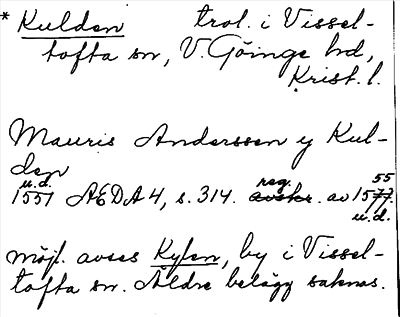 * Kulden trol. i Vissel-
tofta sn, V. Göinge hd,
Krist. l.
Mauris Anderssen y Kul-
den
u.d. 55
1551 ÆDA 4, s. 314. reg. avskr. av 1577.
u.d.
möjl. avses Kylen, by i Vissel-
tofta sn. Äldre belägg saknas.